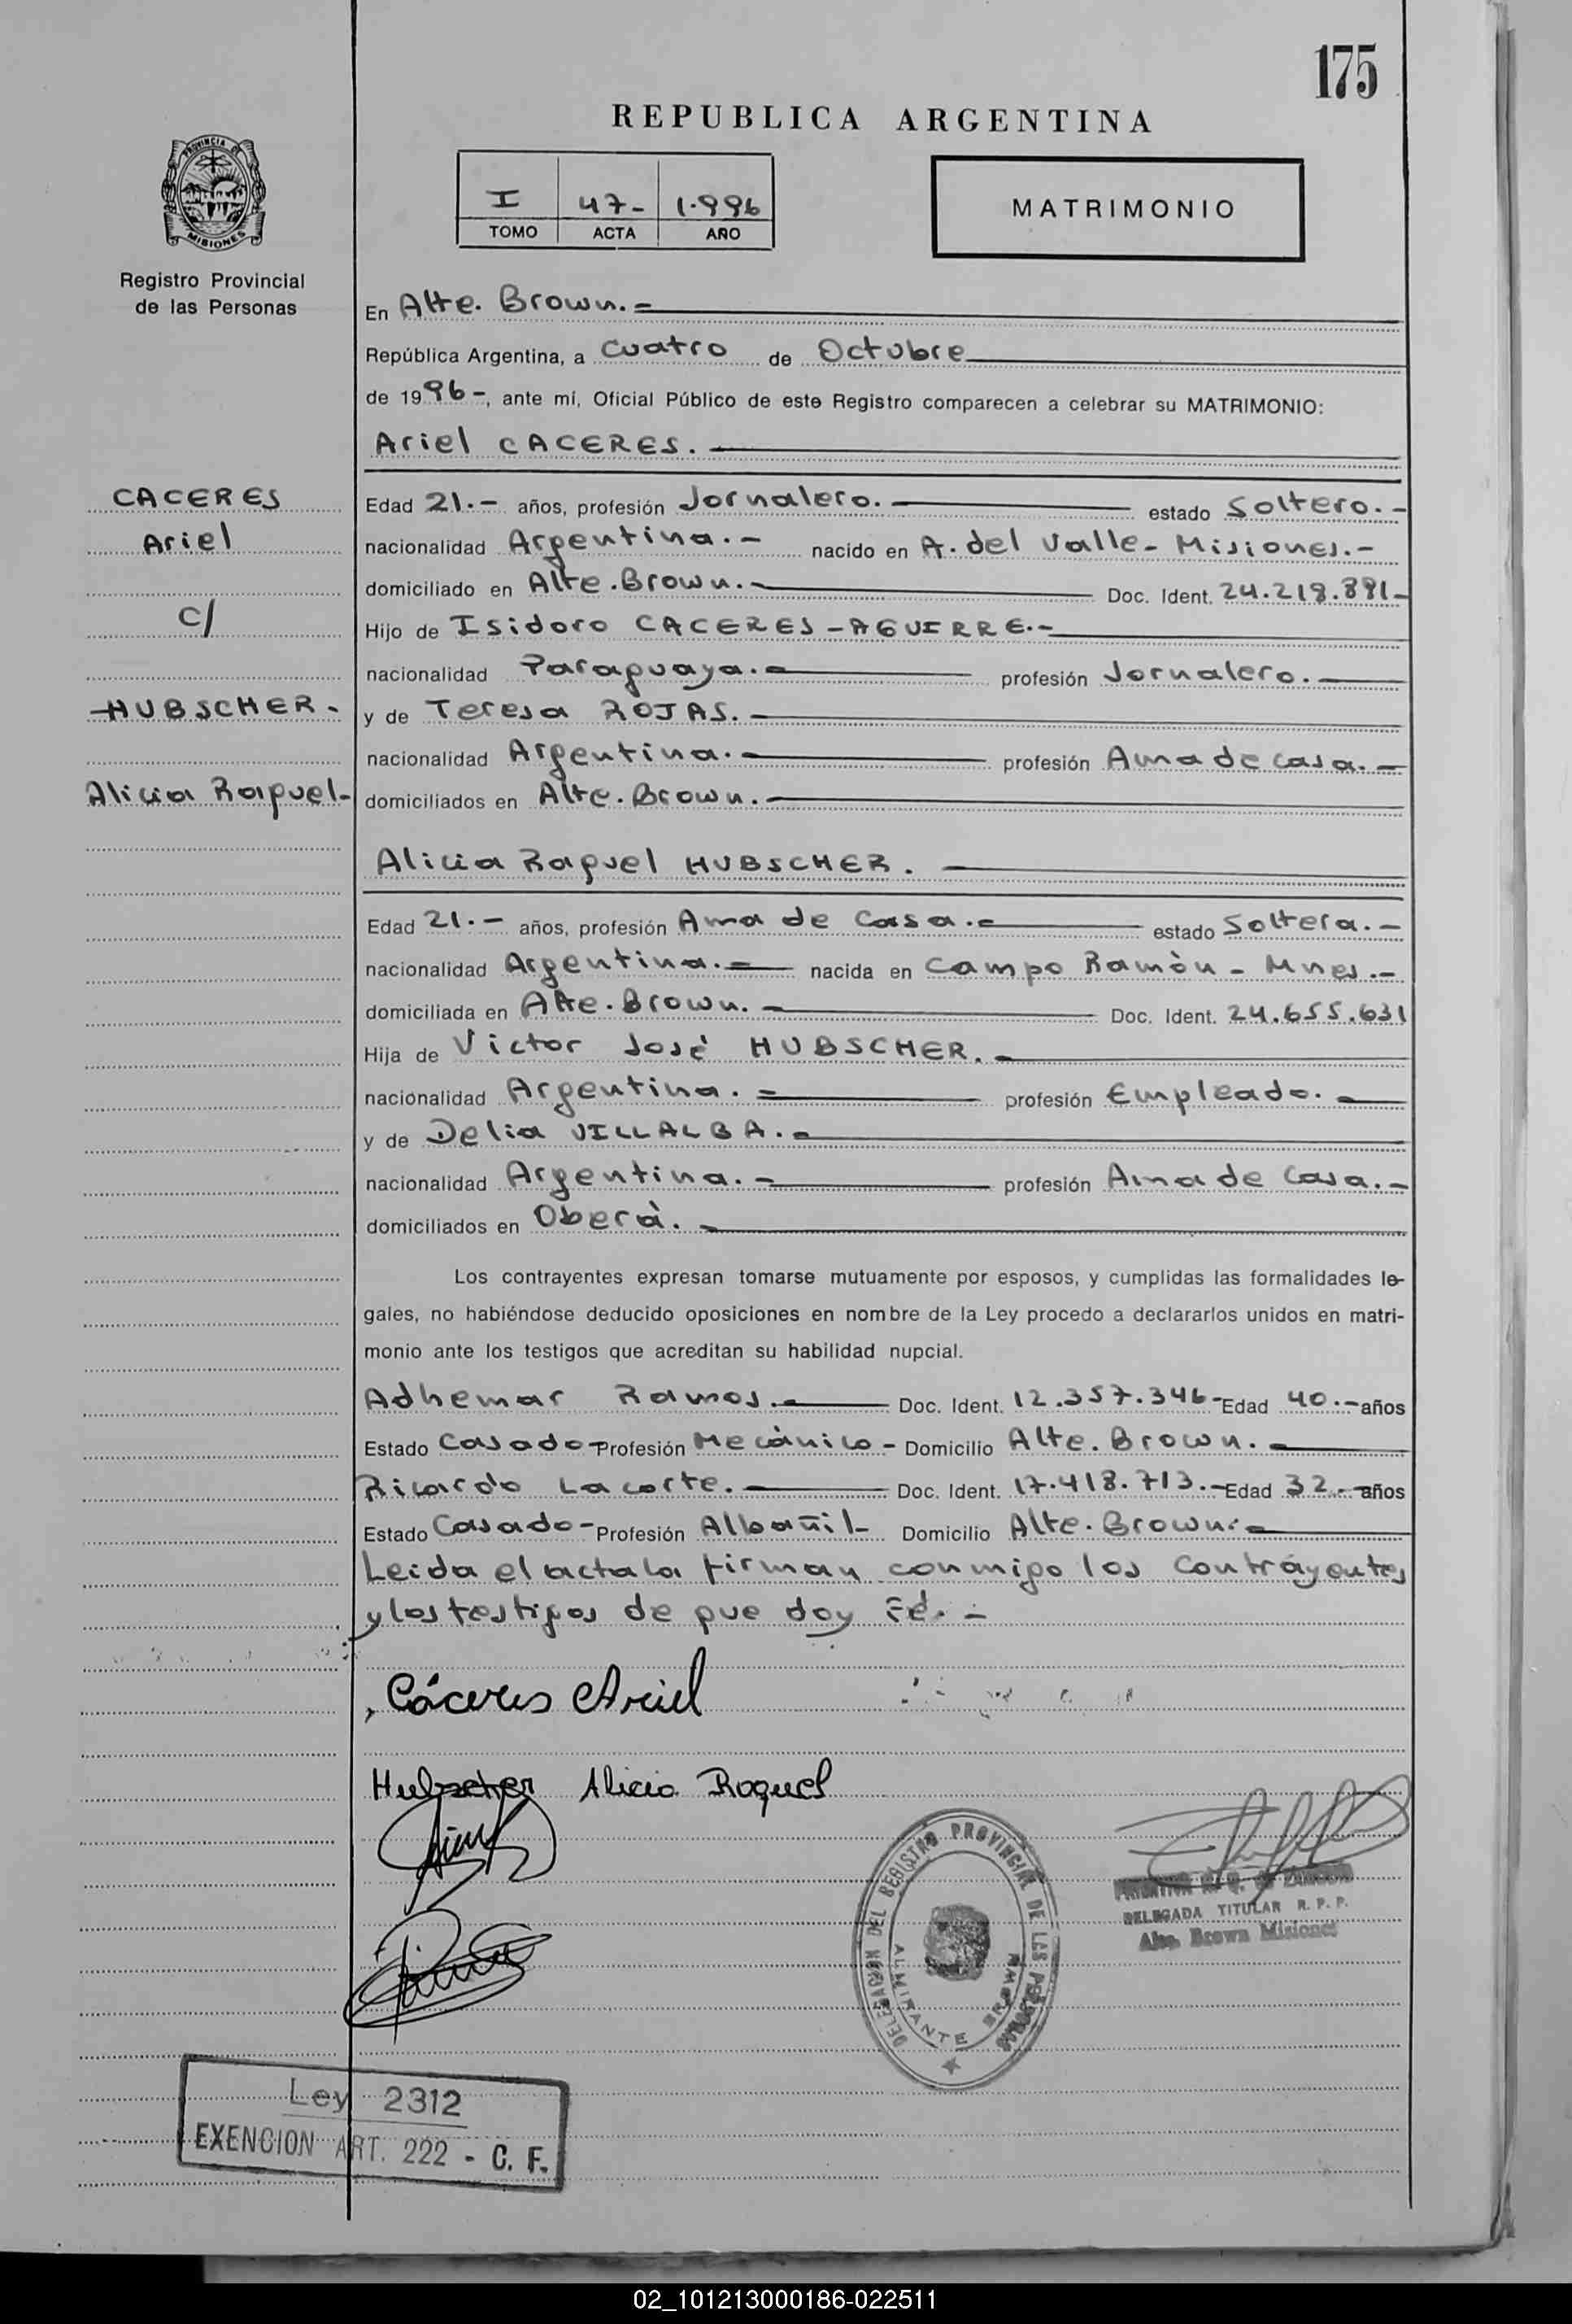 175
REPUBLICA ARGENTINA
PROVINCIA DE
MISIONES
Registro Provincial
de las Personas
I 47- 1.996
TOMO ACTA AÑO
MATRIMONIO
En Alte. Brown.=
República Argentina, a cuatro de Octubre
de 1996-, ante mí, Oficial Público de este Registro comparecen a celebrar su MATRIMONIO:
Ariel CACERES.
CACERES
Ariel
C/
HUBSCHER-
Alicia Raquel-
Edad 21.- años, profesión Jornalero. estado Soltero.-
nacionalidad Argentina.- nacido en A. del Valle- Misiones.-
domiciliado en Alte. Brown.- Doc. Ident. 24.218.891-
Hijo de Isidoro CACERES-AGUIRRE.-
nacionalidad Paraguaya.- profesión Jornalero.
y de Teresa ROJAS.-
nacionalidad Argentina.- profesión Ama de casa.-
domiciliados en Alte. Brown.-
Alicia Raquel HUBSCHER.
Edad 21.- años, profesión Ama de Casa.- estado Soltera.-
nacionalidad Argentina.- nacida en Campo Ramòn - Mnes.-
domiciliada en Alte. Brown.- Doc. Ident. 24.655.631
Hija de Victor José HUBSCHER.-
nacionalidad Argentina.= profesión Empleado.-
y de Delia VILLALBA.-
nacionalidad Argentina.- profesión Ama de Casa.-
domiciliados en Oberà.-
Los contrayentes expresan tomarse mutuamente por esposos, y cumplidas las formalidades le-
gales, no habiéndose deducido oposiciones en nombre de la Ley procedo a declararlos unidos en matri-
monio ante los testigos que acreditan su habilidad nupcial.
Adhemar Ramos.- Doc. Ident. 12.357.346- Edad 40.- años
Estado Casado- Profesión Mecànico- Domicilio Alte. Brown.-
Ricardo Lacorte.- Doc. Ident. 17.418.713.- Edad 32.- años
Estado Casado- Profesión Albañil- Domicilio Alte. Brown.-
Leida el acta la firman conmigo los contrayentes
y los testigos de que doy Fé.-
Cáceres Ariel
Hubscher Alicia Raquel
DELEGACION DEL REGISTRO PROVINCIAL DE LAS PERSONAS
ALMIRANTE BROWN
DELEGADA TITULAR R. P. P.
Alte. Brown Misiones
Ley 2312
EXENCION ART. 222 - C. F.
02_101213000186-022511